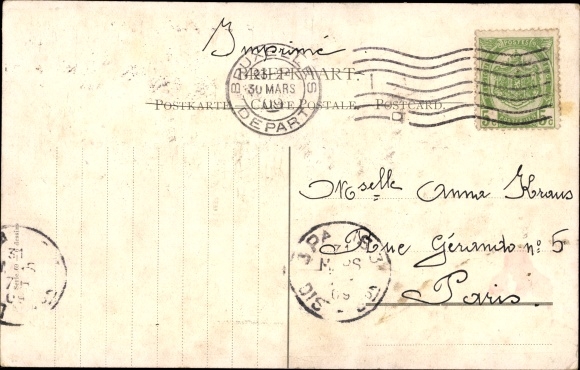 Imprimé
BRIEFKAART.
POSTKARTE. CARTE POSTALE. POSTCARD.
BRUXELLES
30 MARS
09
DEPART
5c 5c
Mselle Anna Kraus
Rue Gérando nº 5
Paris.
PARIS
DIS